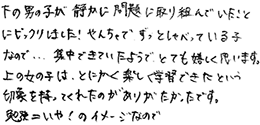 下の男の子が静かに問題に取り組んでいたことに
ビックリしました！やんちゃでずっとしゃべっている子
なので… 集中できていたようでとても嬉しく思います。
上の女の子は、とにかく楽しく学習できたという
印象を持ってくれたのがありがたかったです。
勉強＝いや！のイメージなので